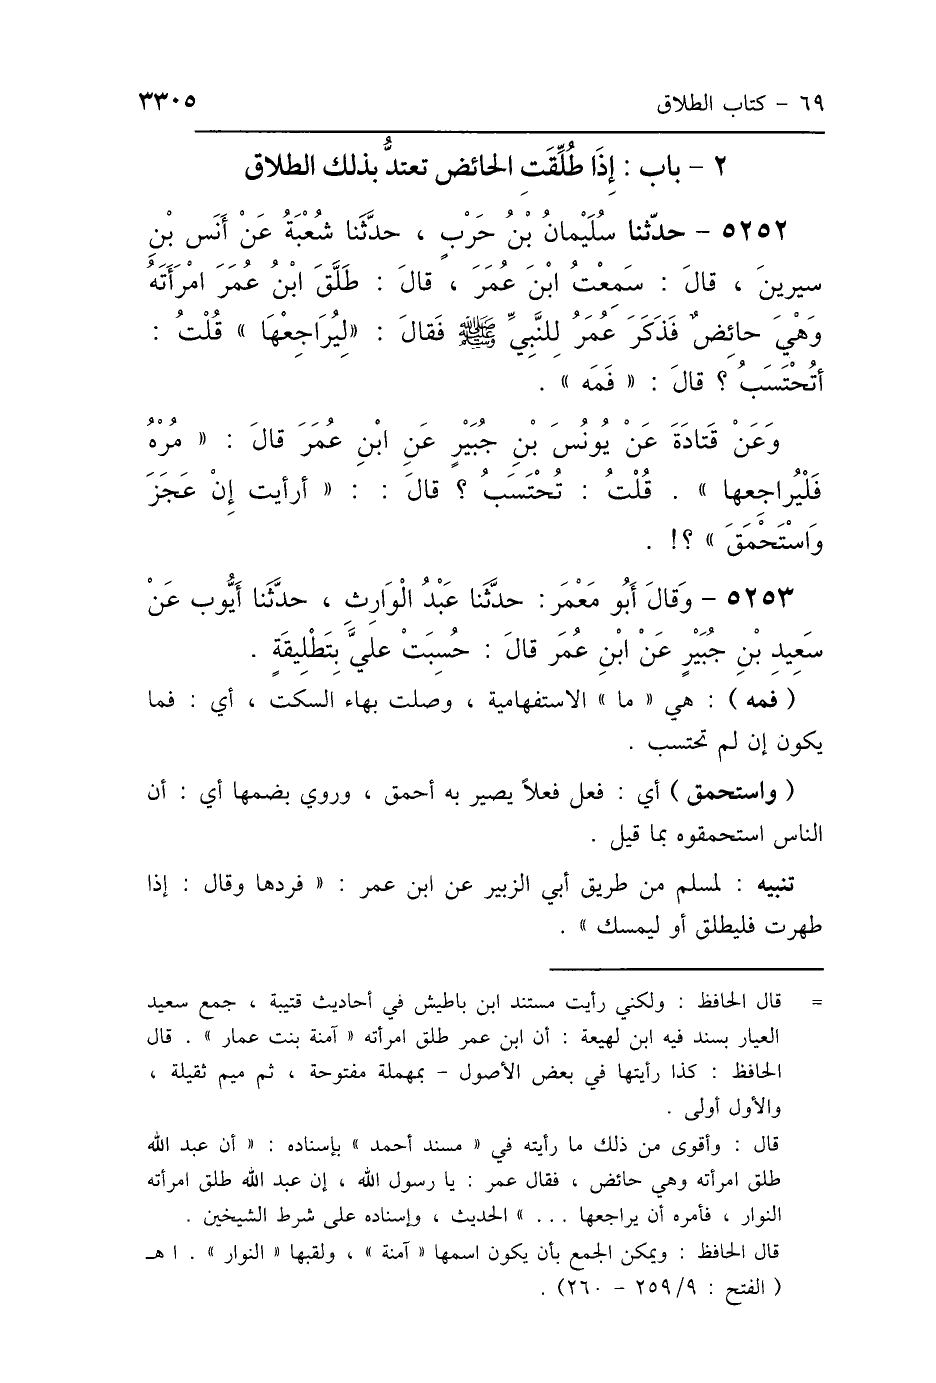 ٦٩ - كتاب الطلاق ٣٣٠٥
٢ - باب : إِذَا طُلِّقَتِ الحائض تعتدُّ بذلك الطلاق
٥٢٥٢ - حدّثنا سُلَيْمانُ بْنُ حَرْبٍ ، حدَّثَنا شُعْبَةُ عَنْ أَنَسِ بْنِ
سيرينَ ، قالَ : سَمِعْتُ ابْنَ عُمَرَ ، قالَ : طَلَّقَ ابْنُ عُمَرَ امْرأَتَهُ
وَهْيَ حائِضٌ فَذَكَرَ عُمَرُ للنَّبِيِّ ﷺ فَقالَ : «لِيُرَاجِعْهَا » قُلْتُ :
أتُحْتَسَبُ ؟ قالَ : « فَمَه » .
وَعَنْ قَتادَةَ عَنْ يُونُسَ بْنِ جُبَيْرٍ عَنِ ابْنِ عُمَرَ قالَ : « مُرْهُ
فَلْيُراجِعها » . قُلْتُ : تُحْتَسَبُ ؟ قالَ : : « أرأيت إِنْ عَجَزَ
وَاسْتَحْمَقَ » ؟! .
٥٢٥٣ - وَقالَ أَبُو مَعْمَرٍ : حدَّثَنا عَبْدُ الْوَارِثِ ، حدَّثَنا أَيُّوب عَنْ
سَعِيدِ بْنِ جُبَيْرٍ عَنْ ابْنِ عُمَرَ قالَ : حُسِبَتْ عليَّ بِتَطْلِيقَةٍ .
( فمه ) : هي « ما » الاستفهامية ، وصلت بهاء السكت ، أي : فما
يكون إن لم تحتسب .
( واستحمق ) أي : فعل فعلاً يصير به أحمق ، وروي بضمها أي : أن
الناس استحمقوه بما قيل .
تنبيه : لمسلم من طريق أبي الزبير عن ابن عمر : « فردها وقال : إذا
طهرت فليطلق أو ليمسك » .
= قال الحافظ : ولكني رأيت مستند ابن باطيش في أحاديث قتيبة ، جمع سعيد
العيار بسند فيه ابن لهيعة : أن ابن عمر طلق امرأته « آمنة بنت عمار » . قال
الحافظ : كذا رأيتها في بعض الأصول - بمهملة مفتوحة ، ثم ميم ثقيلة ،
والأول أولى .
قال : وأقوى من ذلك ما رأيته في « مسند أحمد » بإسناده : « أن عبد الله
طلق امرأته وهي حائض ، فقال عمر : يا رسول الله ، إن عبد الله طلق امرأته
النوار ، فأمره أن يراجعها ... » الحديث ، وإسناده على شرط الشيخين .
قال الحافظ : ويمكن الجمع بأن يكون اسمها « آمنة » ، ولقبها « النوار » . ا هـ
( الفتح : ٢٥٩/٩ - ٢٦٠) .